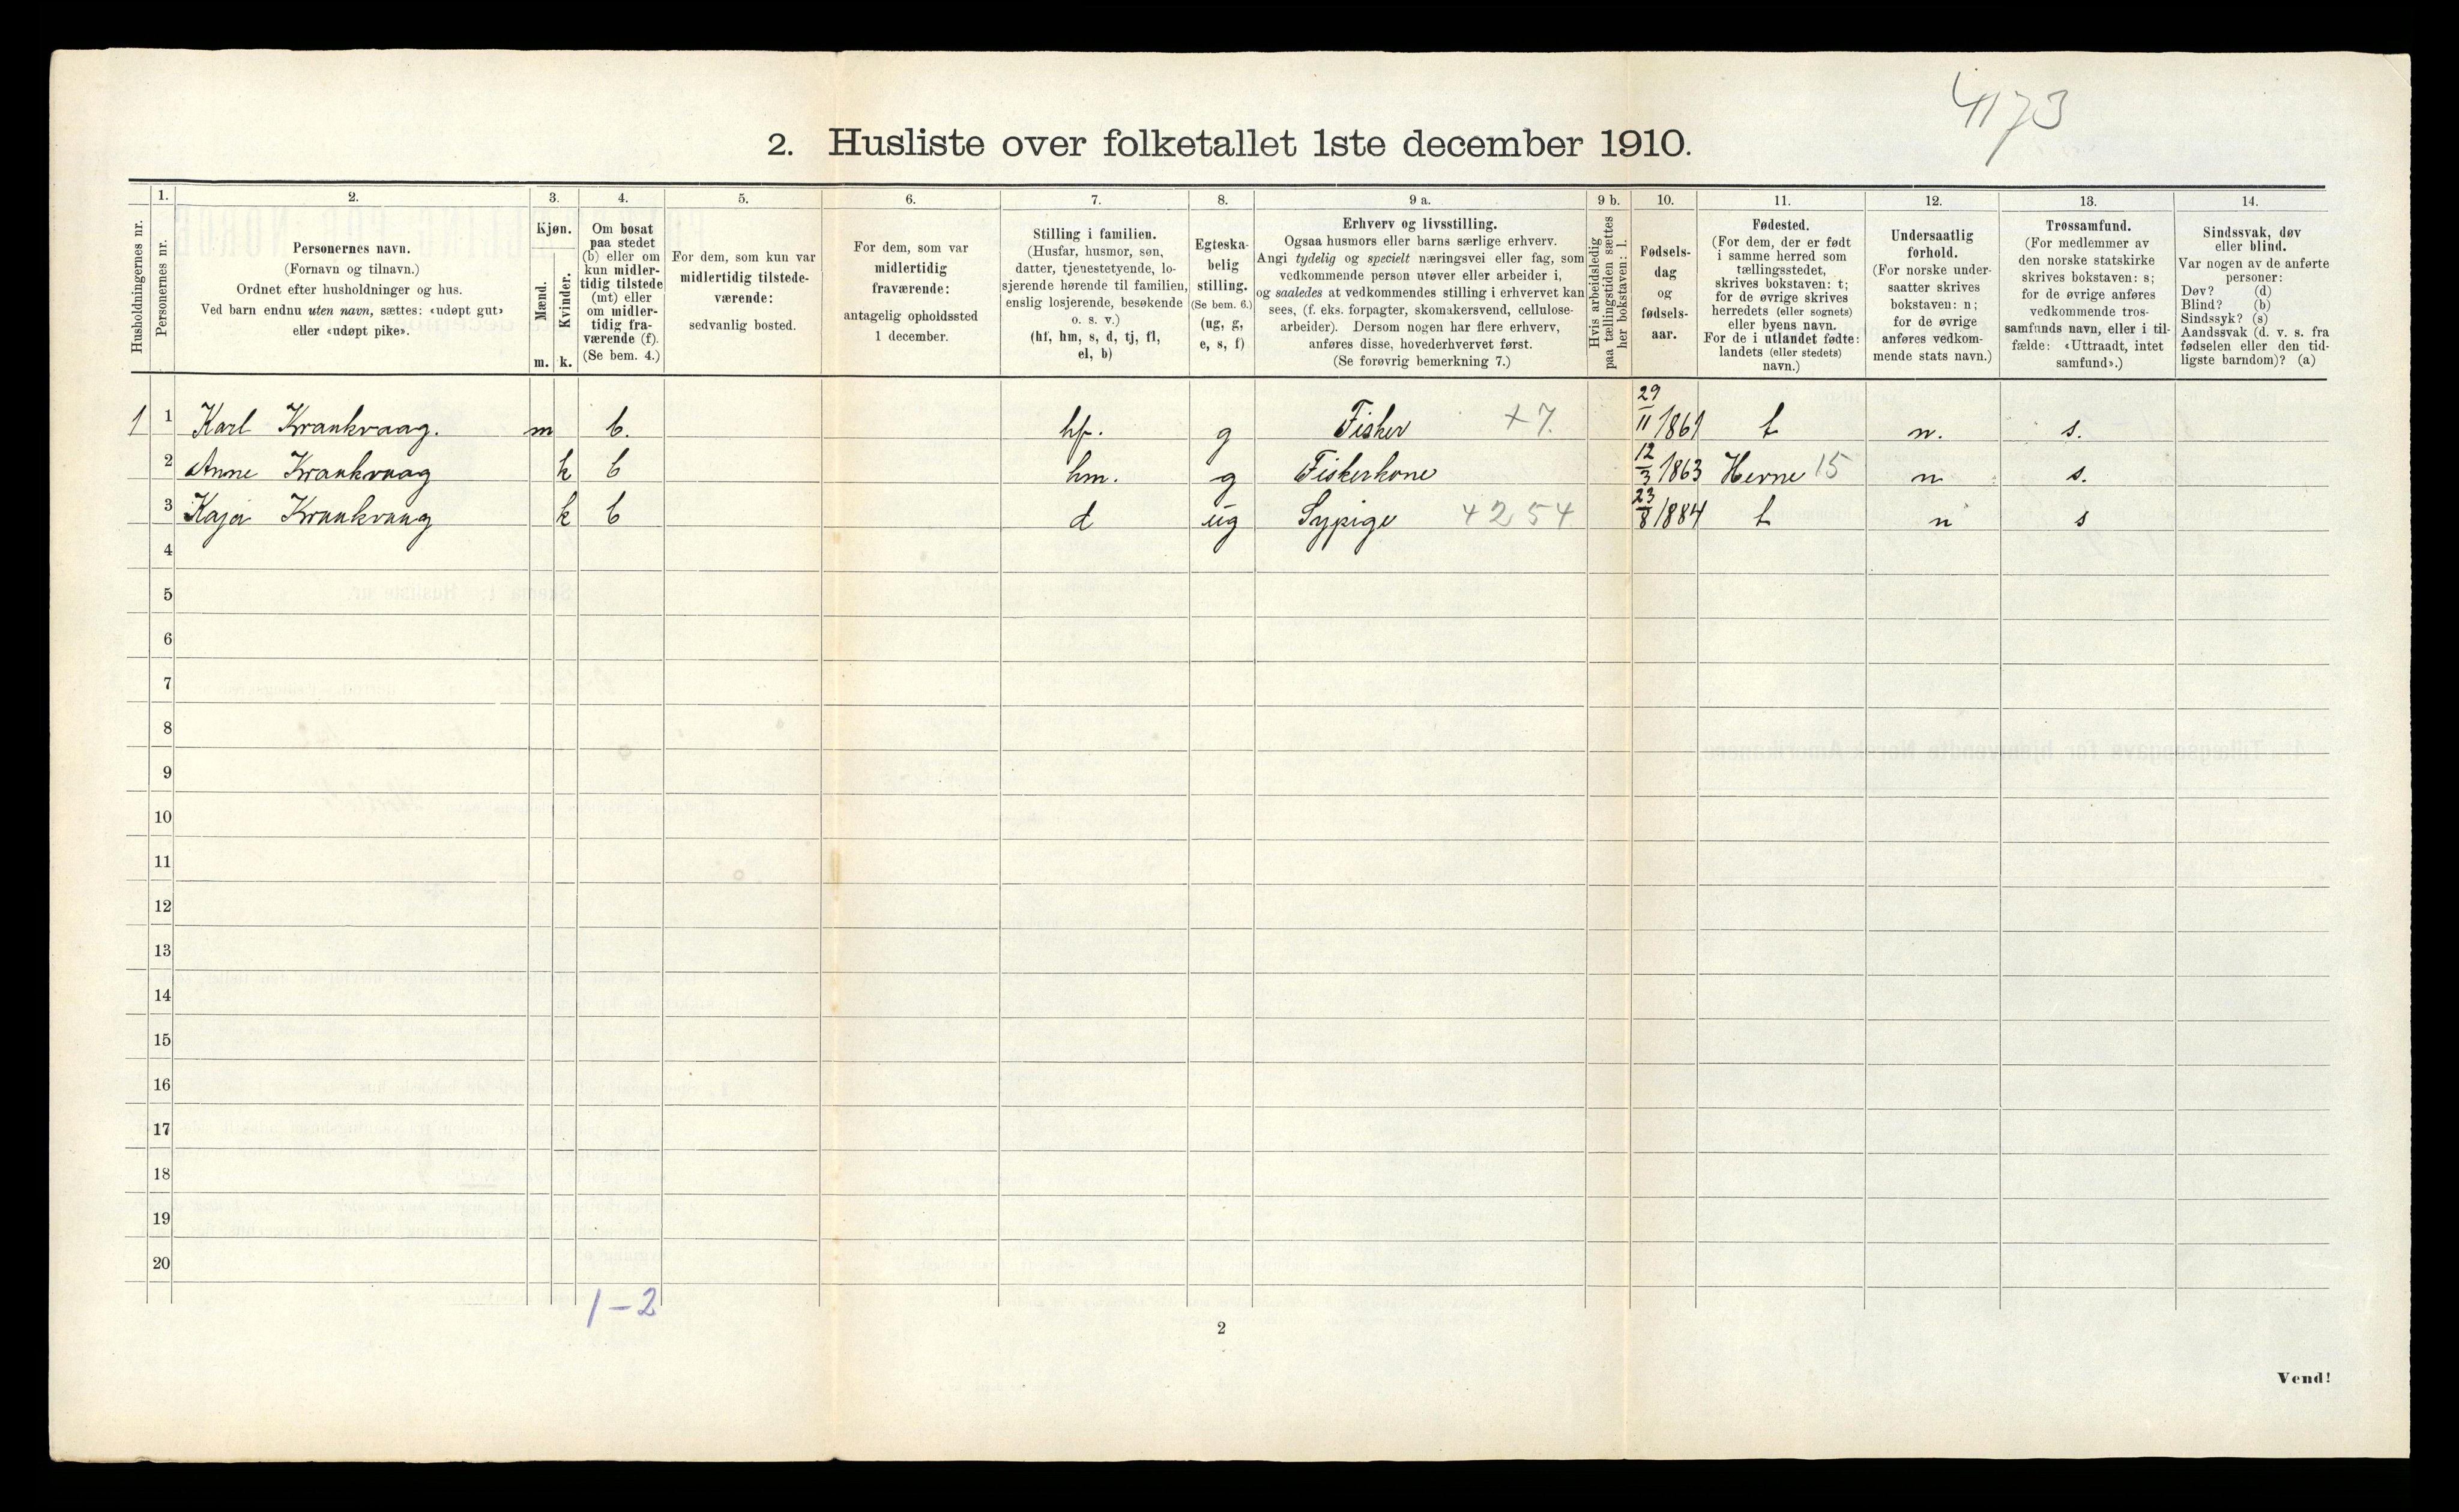 4173
2. Husliste over folketallet 1ste december 1910.
Husholdningernes nr.
1.
Personernes nr.
2.
Personernes navn.
(Fornavn og tilnavn.)
Ordnet efter husholdninger og hus.
Ved barn endnu uten navn, sættes: «udøpt gut»
eller «udøpt pike».
3.
Kjøn.
Mænd.
Kvinder.
m. k.
4.
Om bosat
paa stedet
(b) eller om
kun midler-
tidig tilstede
(mt) eller
om midler-
tidig fra-
værende (f).
(Se bem. 4.)
5.
For dem, som kun var
midlertidig tilstede-
værende:
sedvanlig bosted.
6.
For dem, som var
midlertidig
fraværende:
antagelig opholdssted
1 december.
7.
Stilling i familien.
(Husfar, husmor, søn,
datter, tjenestetyende, lo-
sjerende hørende til familien,
enslig losjerende, besøkende
o. s. v.)
(hf, hm, s, d, tj, fl,
el, b)
8.
Egteska-
belig
stilling.
(Se bem. 6.)
(ug, g,
e, s, f)
9 a.
Erhverv og livsstilling.
Ogsaa husmors eller barns særlige erhverv.
Angi tydelig og specielt næringsvei eller fag, som
vedkommende person utøver eller arbeider i,
og saaledes at vedkommendes stilling i erhvervet kan
sees, (f. eks. forpagter, skomakersvend, cellulose-
arbeider). Dersom nogen har flere erhverv,
anføres disse, hovederhvervet først.
(Se forøvrig bemerkning 7.)
9 b.
Hvis arbeidsledig
paa tællingstiden sættes
her bokstaven: l.
10.
Fødsels-
dag
og
fødsels-
aar.
11.
Fødested.
(For dem, der er født
i samme herred som
tællingsstedet,
skrives bokstaven: t;
for de øvrige skrives
herredets (eller sognets)
eller byens navn.
For de i utlandet fødte:
landets (eller stedets)
navn.)
12.
Undersaatlig
forhold.
(For norske under-
saatter skrives
bokstaven: n;
for de øvrige
anføres vedkom-
mende stats navn.)
13.
Trossamfund.
(For medlemmer av
den norske statskirke
skrives bokstaven: s;
for de øvrige anføres
vedkommende tros-
samfunds navn, eller i til-
fælde: «Uttraadt, intet
samfund».)
14.
Sindssvak, døv
eller blind.
Var nogen av de anførte
personer:
Døv? (d)
Blind? (b)
Sindssyk? (s)
Aandssvak (d. v. s. fra
fødselen eller den tid-
ligste barndom)? (a)
1 1 Karl Krankvaag. m b. hf. g Fisker +7. 29/11 1861 t n. s.
2 Anne Krankvaag k b hm. g Fiskerkone 12/3 1863 Herne 15 n s.
3 Kaja Krankvaag k b d ug Sypige +254 23/8 1884 t n s
4
5
6
7
8
9
10
11
12
13
14
15
16
17
18
19
20
1-2
2
Vend!